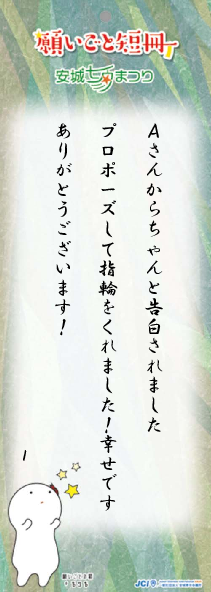 願いごと短冊
安城七夕まつり
Aさんからちゃんと告白されました
プロポーズして指輪をくれました！幸せです
ありがとうございます！
I
JCI